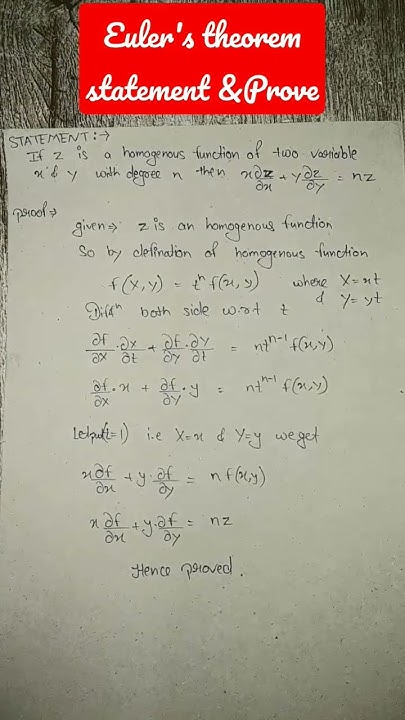 Euler's theorem
statement & Prove
STATEMENT:→
If z is a homogenous function of two variable
x & y with degree n then x ∂z/∂x + y ∂z/∂y = nz
proof→
given→ z is an homogenous function
So by defination of homogenous function
f(X, Y) = tⁿ f(x, y) where X = xt
& Y = yt
Diffⁿ both side w.r.t t
∂f/∂X · ∂X/∂t + ∂f/∂Y · ∂Y/∂t = ntⁿ⁻¹ f(x, y)
∂f/∂X · x + ∂f/∂Y · y = ntⁿ⁻¹ f(x, y)
Let put(t=1) i.e X=x & Y=y we get
x ∂f/∂x + y · ∂f/∂y = n f(x,y)
x ∂f/∂x + y · ∂f/∂y = nz
Hence proved.